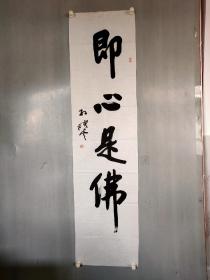 即心是佛